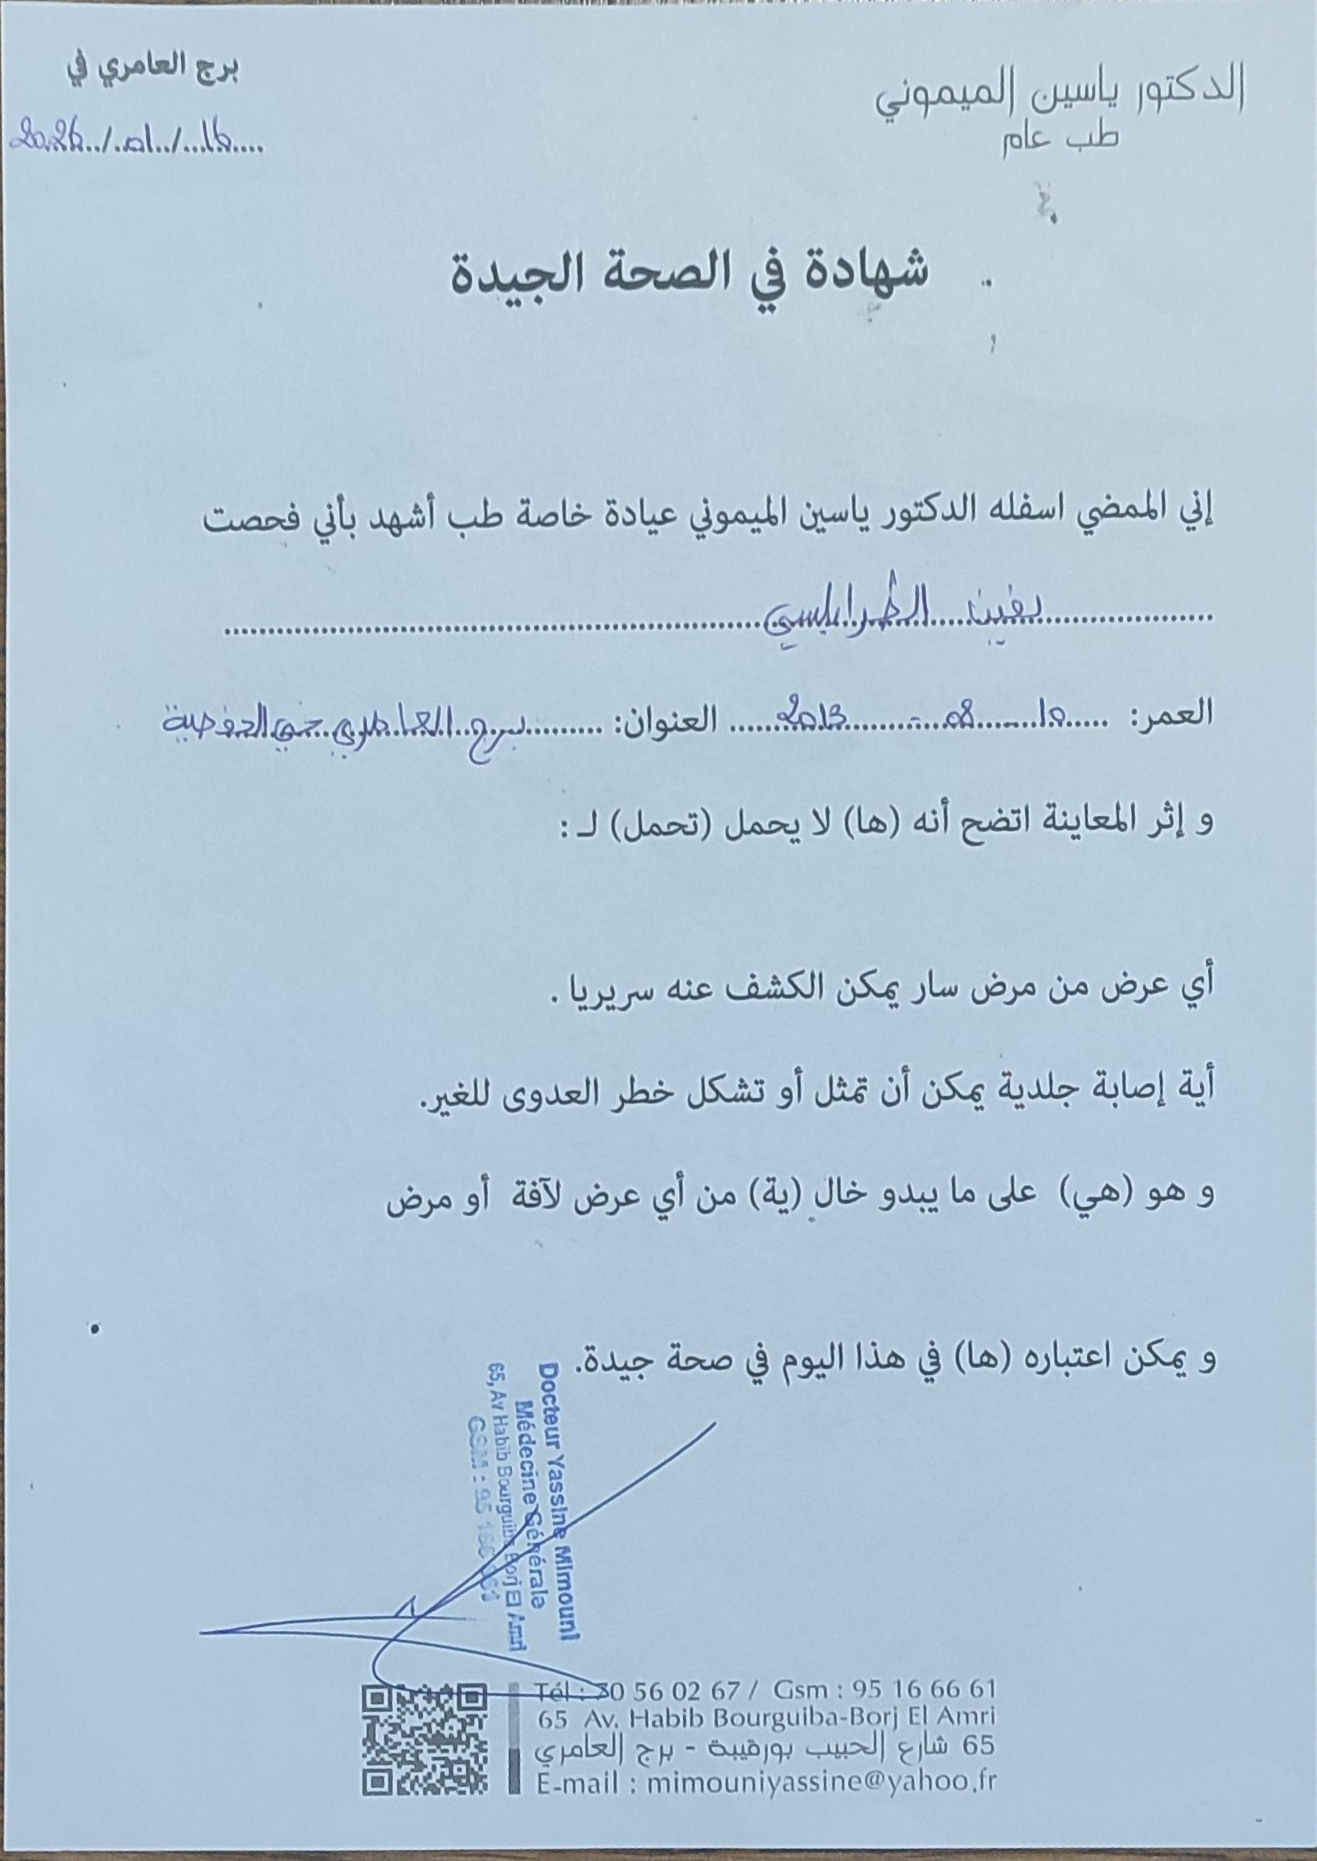 الدكتور ياسين الميموني
طب عام
برج العامري في
2026
شهادة في الصحة الجيدة
إني الممضي اسفله الدكتور ياسين الميموني عيادة خاصة طب أشهد بأني فحصت
يقين الطرابلسي
العمر: 10 - 08 - 2013 العنوان: برج العامري حي
و إثر المعاينة اتضح أنه (ها) لا يحمل (تحمل) لـ :
أي عرض من مرض سار يمكن الكشف عنه سريريا .
أية إصابة جلدية يمكن أن تمثل أو تشكل خطر العدوى للغير.
و هو (هي) على ما يبدو خال (ية) من أي عرض لآفة أو مرض
و يمكن اعتباره (ها) في هذا اليوم في صحة جيدة.
Docteur Yassine Mimouni
Médecine Générale
65, Av Habib Bourguiba Borj El Amri
GSM : 95 166 661
Tél : 70 56 02 67 / Gsm : 95 16 66 61
65 Av. Habib Bourguiba-Borj El Amri
65 شارع الحبيب بورقيبة - برج العامري
E-mail : mimouniyassine@yahoo.fr